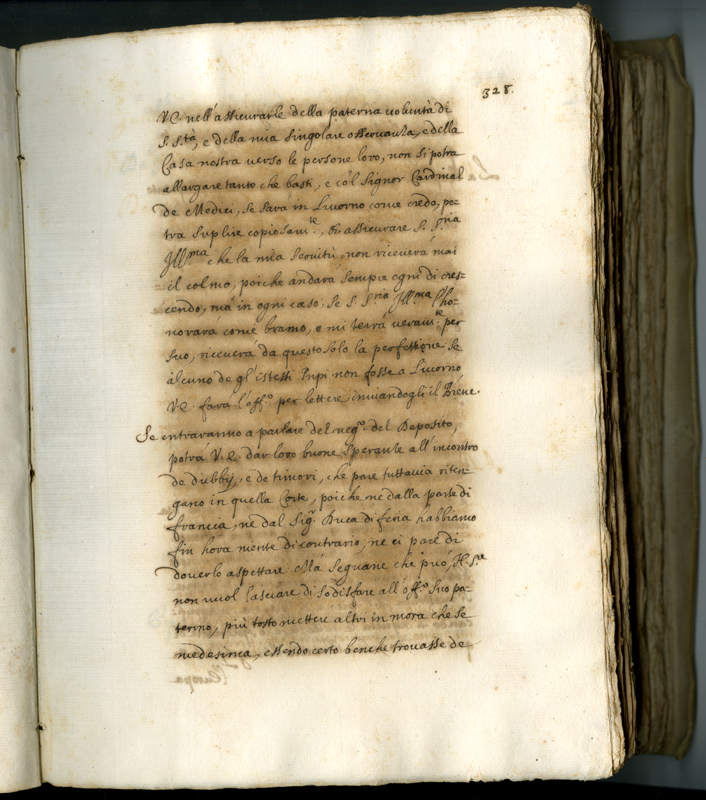 328.
V.E. nell'assicurarle della paterna uolontà di
S. S.tà, e della mia singolare osseruanza, e della
Casa nostra verso le persone loro, non si potrà
allargare tanto che basti, e col Signor Cardinal
de Medici, se sarà in Liuorno come credo, po-
trà suplire copiosam.te, et assicurare S. S.ria
Ill.ma che la mia seruitù, non riceuerà mai
il colmo, poiche andarà sempre ogni dì cres-
cendo, mà in ogni caso, se S. S.ria Ill.ma l'ho-
norarà come bramo, e mi terrà veram.te per
suo, riceuerà da questo solo la perfettione. Se
alcuno de gl'istessi Pnpi non fosse a Liuorno
V.E. farà l'off.o per lettere, inuiandogli il Breue.
Se entraranno a parlare del neg.o del Deposito,
potrà V.E. dar loro buone speranze all'incontro
de dubbij, e de timori, che pare tuttauia riten-
gano in quella Corte, poiche ne dalla parte di
francia, ne dal Sig.r Duca di feria habbiamo
fin hora niente di contrario, ne ci pare di
douerlo aspettare. Mà seguane che può, N. S.re
non vuol lasciare di sodisfare all'off.o suo pa-
terno, più tosto mettere altri in mora che se
medesimo, essendo certo benche trouasse de